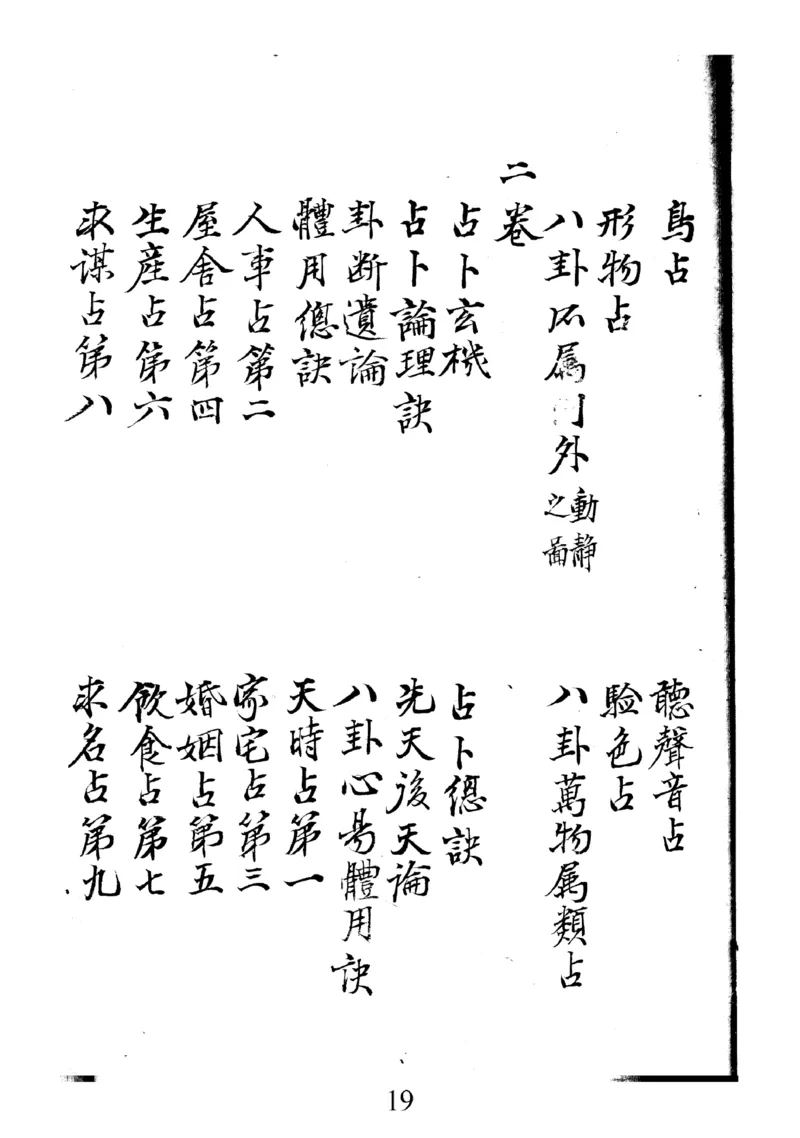 鳥占 聽聲音占
形物占 驗色占
八卦所属外動靜之啚 八卦萬物属類占
二卷
占卜玄機 占卜總訣
占卜論理訣 先天後天論
卦断遺論 八卦心易體用訣
體用總訣 天時占第一
人事占第二 家宅占第三
屋舍占第四 婚姻占第五
生産占第六 飲食占第七
求謀占第八 求名占第九
19